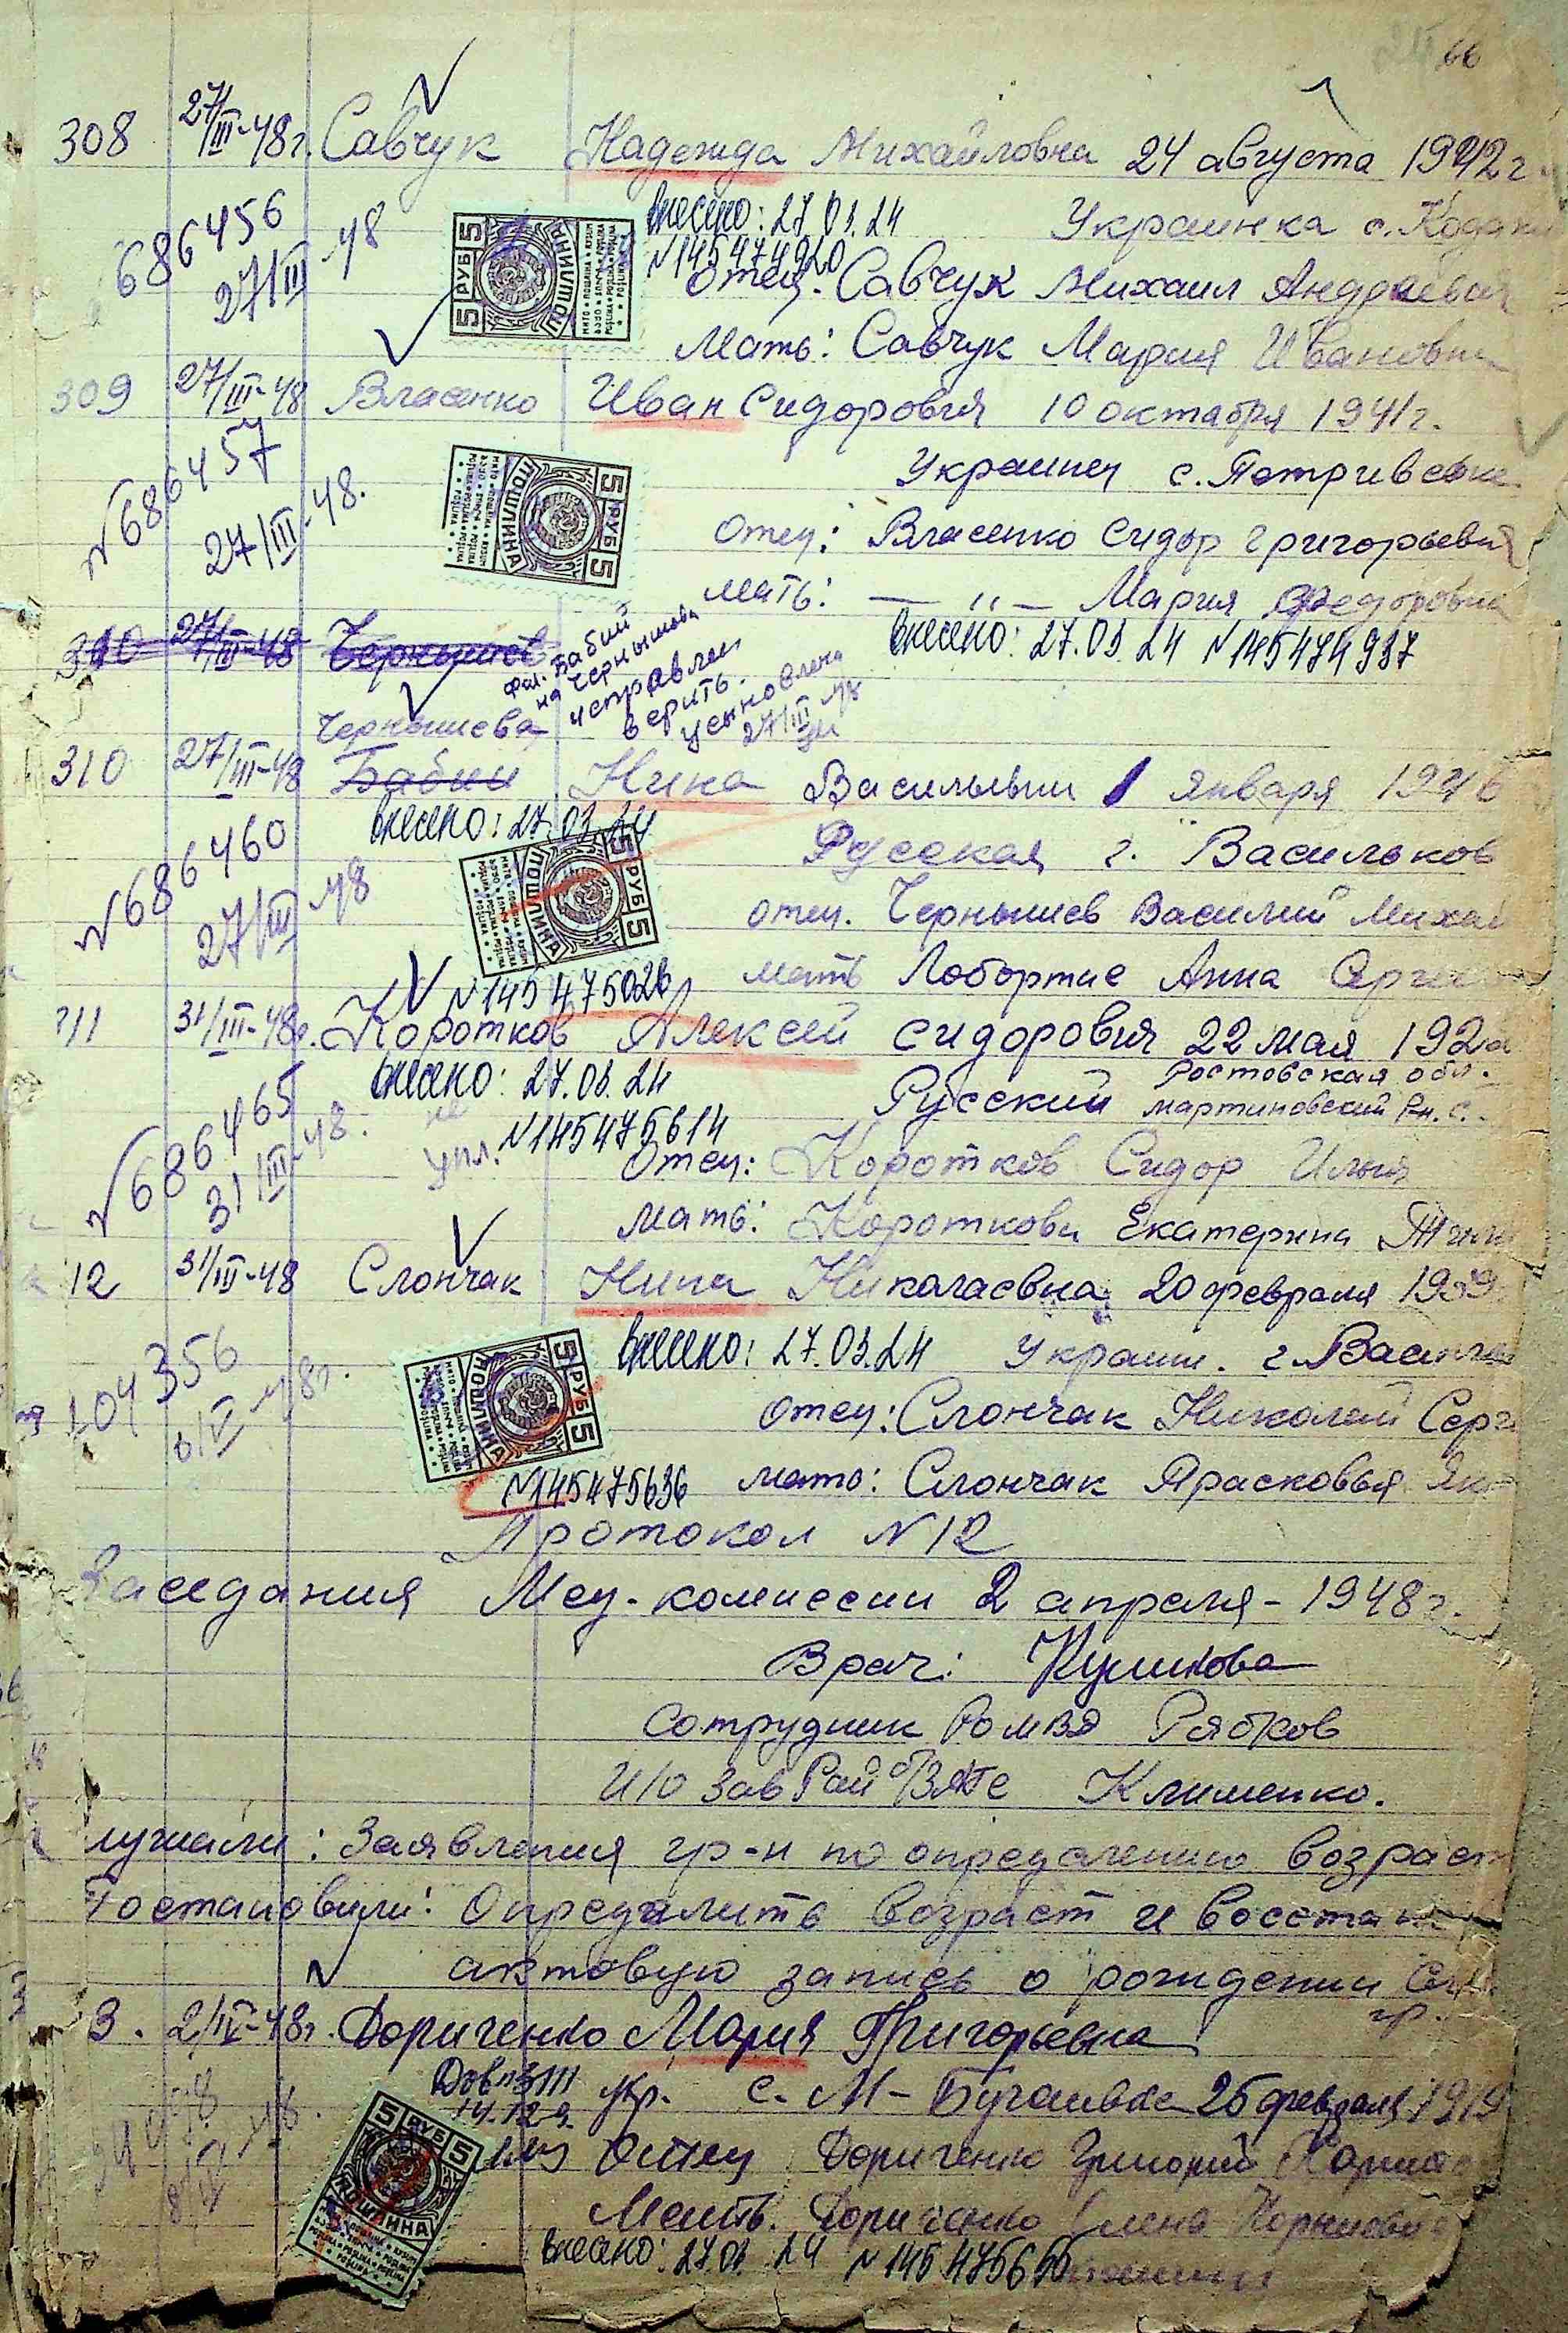 66
308 27/III-48г. Савчук Надежда Михайловна 24 августа 1942 г.
686456 внесено: 27.03.24 Украинка с.
27/III 48 N145474920
5 РУБ 5 ПОШЛИНА
Отец. Савчук Михаил Андреевич
Мать: Савчук Мария Ивановна
309 27/III-48 Власенко Иван Сидорович 10 октября 1941 г.
N686457 Украинец с.
27/III-48.
5 РУБ 5 ПОШЛИНА
Отец: Власенко Сидор Григорьевич
Мать: — " — Мария Федоровна
310 27/III-48 Чернышев внесено: 27.03.24 N145474937
фам. Бабий
на Чернышева
исправлен
верить.
27/III 48
Чернышева
310 27/III-48 Бабий Нина Васильевна 1 января 1946
внесено: 27.03.24
N686460 Русская г. Васильков
27/III 48
5 РУБ 5 ПОШЛИНА
отец. Чернышев Василий Миха
мать Анна
N145475026
311 31/III-48г. Коротков Алексей Сидорович 22 мая 192
внесено: 27.03.24 Русский Ростовская обл.
мартиновский р-н. с.
N686465 N145475614
31/III-48. упл.
Отец: Коротков Сидор
Мать: Короткова Екатерина
12 31/III-48 Слончак Нина Николаевна 20 февраля 1939
внесено: 27.03.24 Украин. г.
104356
5 РУБ 5 ПОШЛИНА
Отец: Слончак Николай Серг
N145475636 мать: Слончак Прасковья Як
Протокол N 12
Заседания Мед. комиссии 2 апреля - 1948 г.
Врач: Куликова
Сотрудник РОМВД Рябков
И/О Зав Рай Клименко.
лушали: Заявления гр-н по определению возраст
Постановили: Определить возраст и восстан
актовую запись о рождении
гр.
3. 2/IV-48г. Дориченко Мария Григорьевна
укр. с. М-Бугаивка 26 февраля 1919
14.12
5 РУБ 5 ПОШЛИНА
Отец Дориченко Григорий
Мать. Дориченко Елена
внесено: 27.03.24 N 145475665